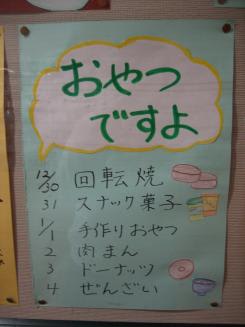 おやつ
ですよ
12/30 回転焼
31 スナック菓子
1/1 手作りおやつ
2 肉まん
3 ドーナッツ
4 ぜんざい